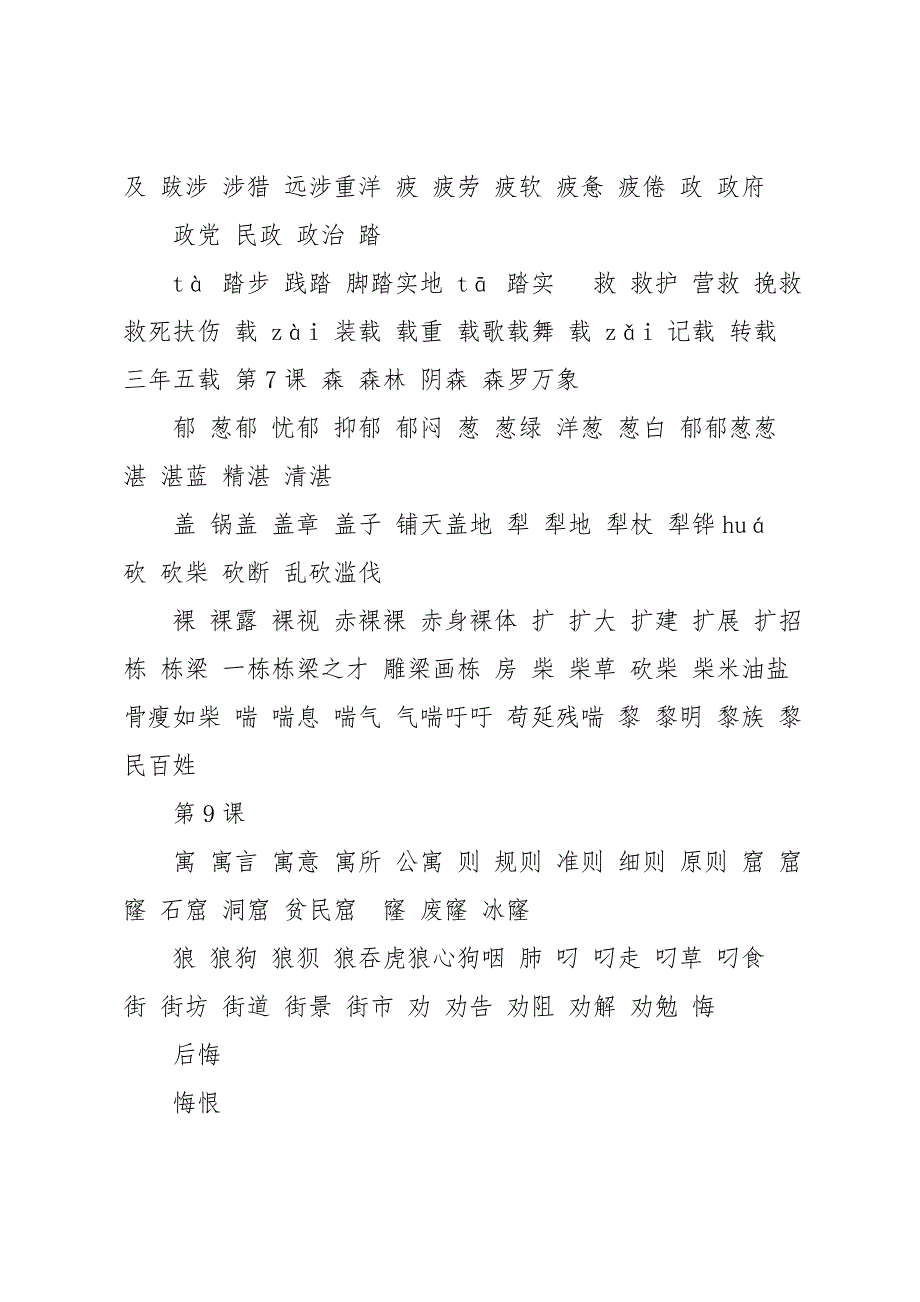 及 跋涉 涉猎 远涉重洋 疲 疲劳 疲软 疲惫 疲倦 政 政府
政党 民政 政治 踏
tà 踏步 践踏 脚踏实地 tā 踏实 救 救护 营救 挽救
救死扶伤 载 zài 装载 载重 载歌载舞 载 zǎi 记载 转载
三年五载 第7课 森 森林 阴森 森罗万象
郁 葱郁 忧郁 抑郁 郁闷 葱 葱绿 洋葱 葱白 郁郁葱葱
湛 湛蓝 精湛 清湛
盖 锅盖 盖章 盖子 铺天盖地 犁 犁地 犁杖 犁铧huá
砍 砍柴 砍断 乱砍滥伐
裸 裸露 裸视 赤裸裸 赤身裸体 扩 扩大 扩建 扩展 扩招
栋 栋梁 一栋栋梁之才 雕梁画栋 房 柴 柴草 砍柴 柴米油盐
骨瘦如柴 喘 喘息 喘气 气喘吁吁 苟延残喘 黎 黎明 黎族 黎
民百姓
第9课
寓 寓言 寓意 寓所 公寓 则 规则 准则 细则 原则 窟 窟
窿 石窟 洞窟 贫民窟 窿 废窿 冰窿
狼 狼狗 狼狈 狼吞虎狼心狗咽 肺 叼 叼走 叼草 叼食
街 街坊 街道 街景 街市 劝 劝告 劝阻 劝解 劝勉 悔
后悔
悔恨